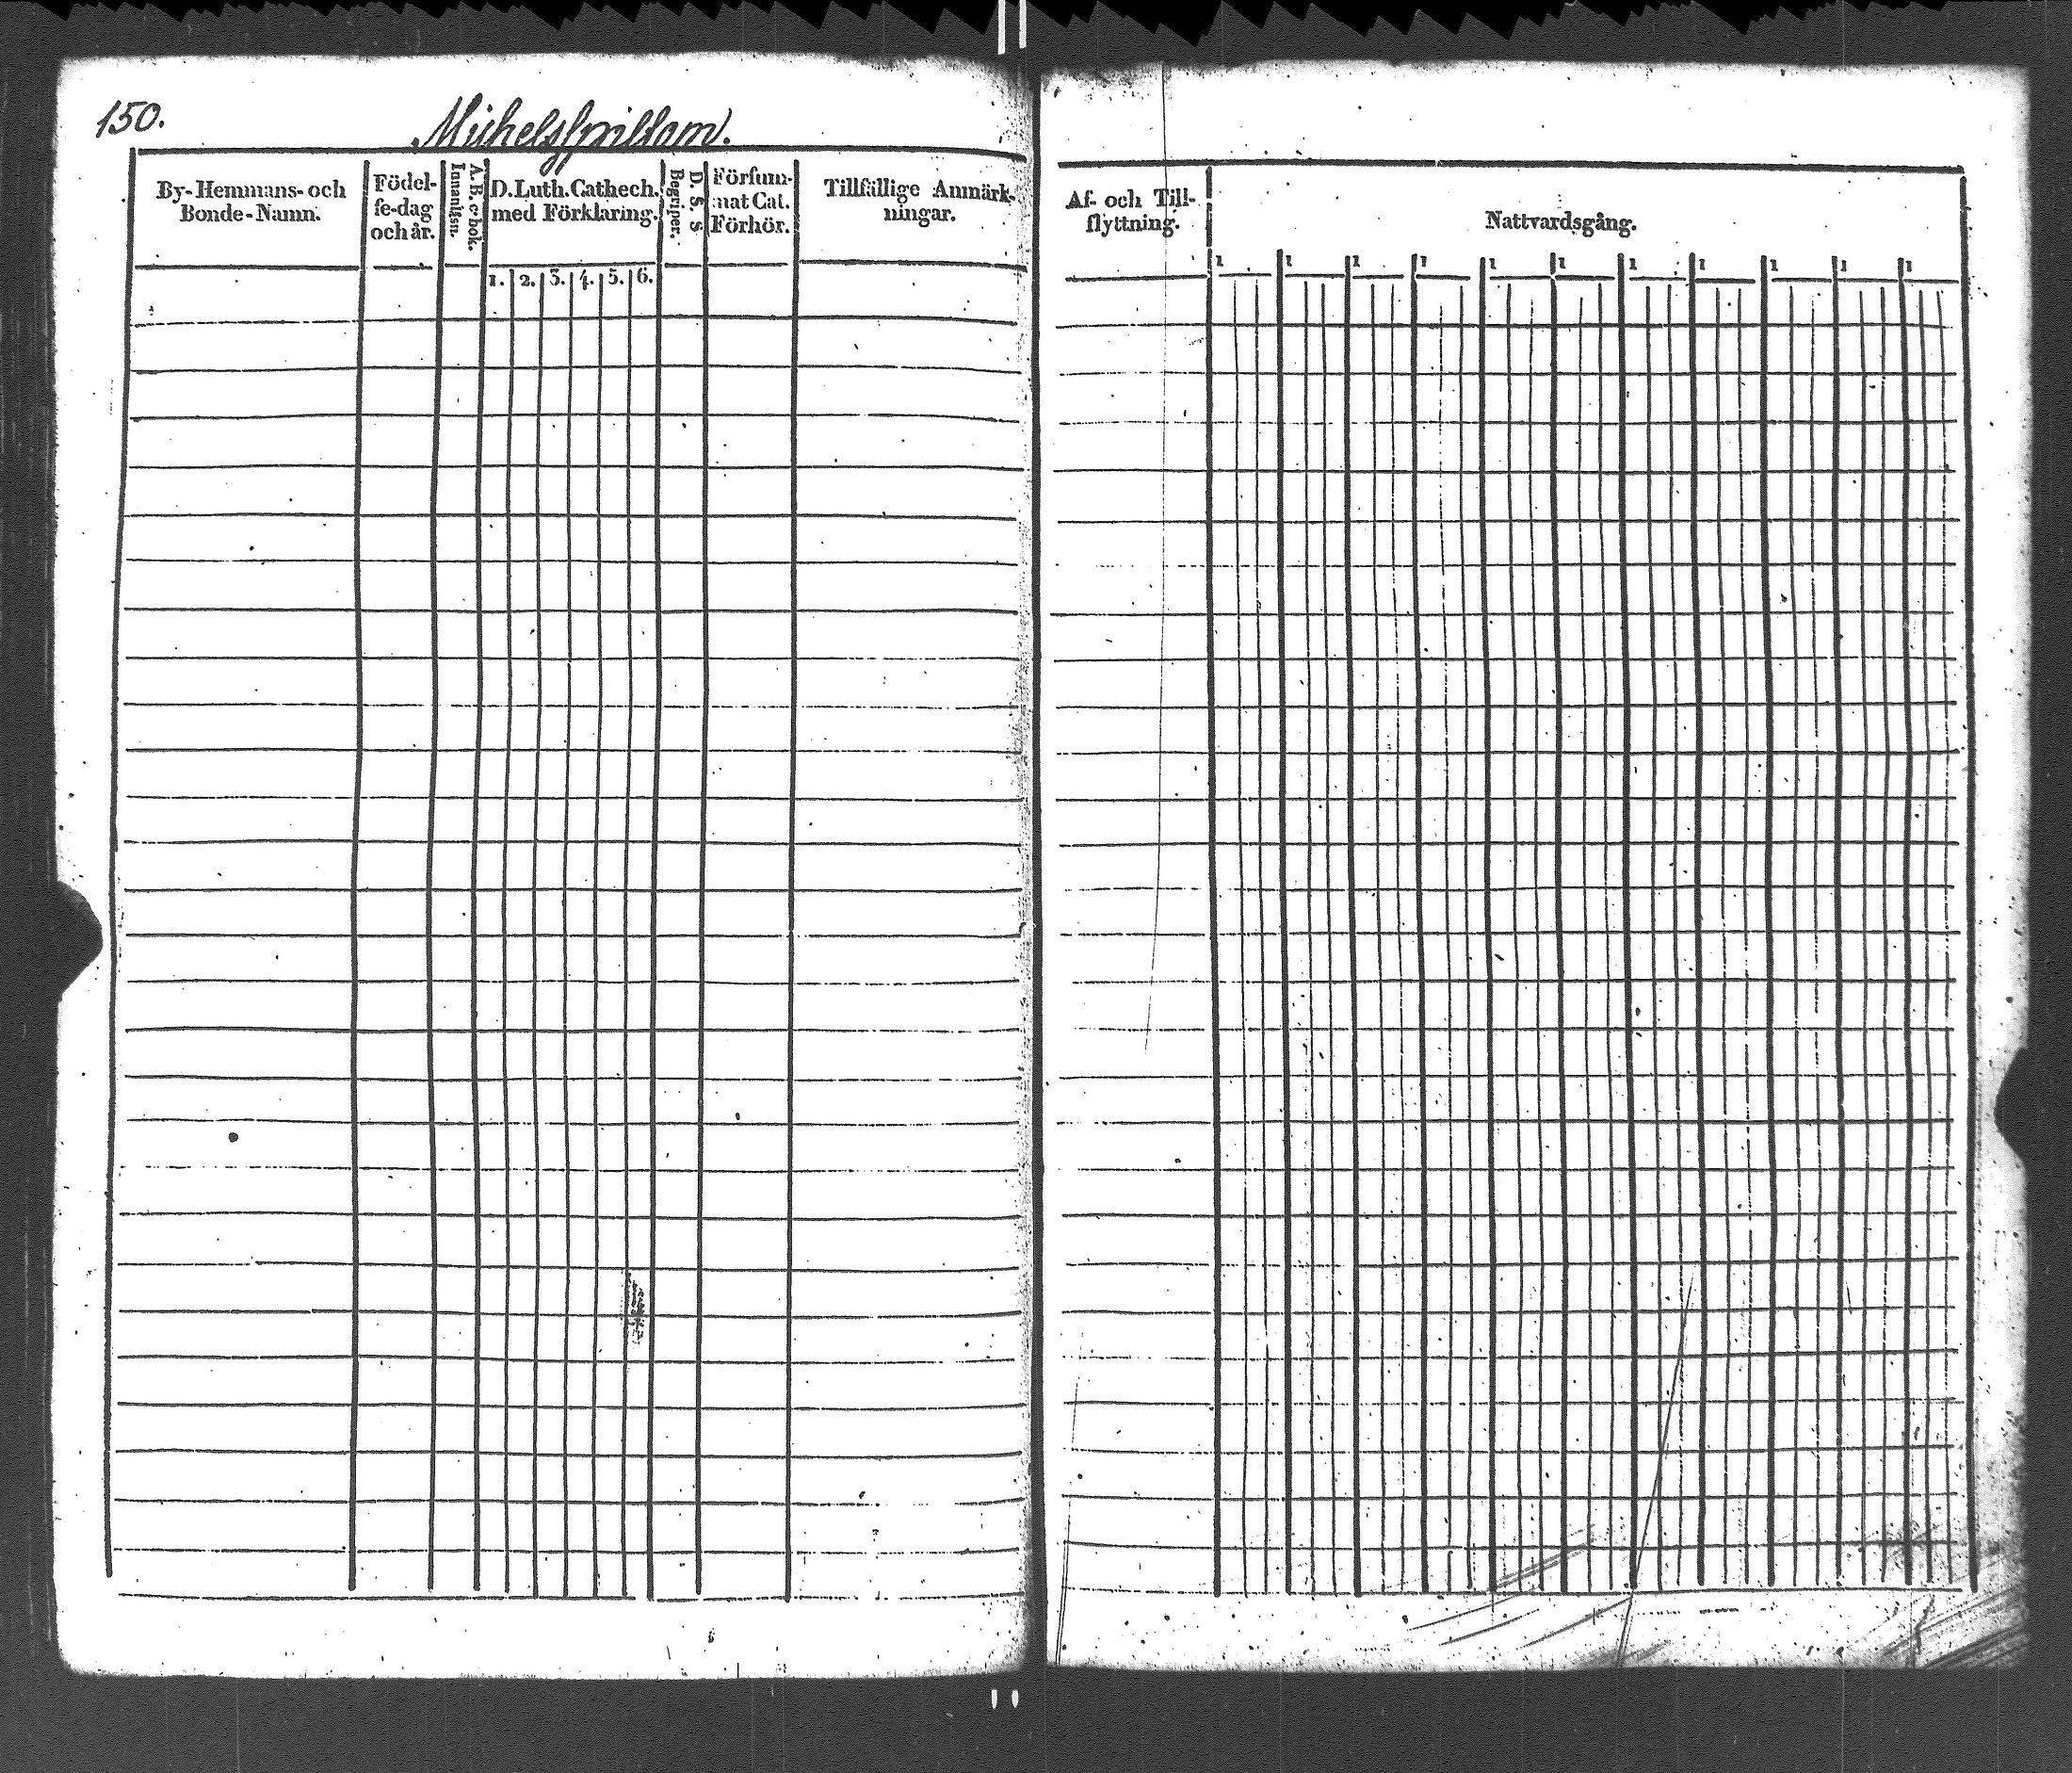 150.
Michelspiltom.
By-Hemmans- och
Bonde-Namn.
Födel-
se-dag
och år.
A.B.c-bok.
Innanläsn.
D. Luth. Cathech.
med Förklaring.
1. 2. 3. 4. 5. 6.
D. S. S
Begriper.
Försum-
mat Cat.
Förhör.
Tillfällige Anmärk-
ningar.
Af- och Till-
flyttning.
Nattvardsgång.
1 1 1 1 1 1 1 1 1 1 1